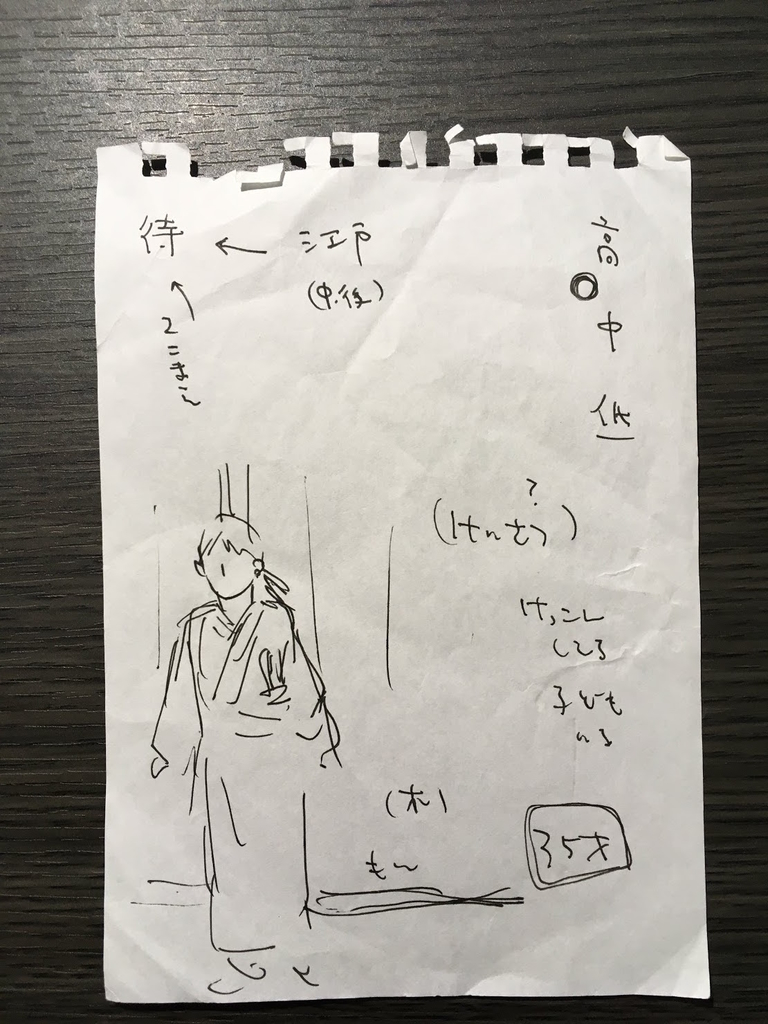 高
中
低
待 ← 江戸
(中.後)
(けいさつ)
?
けっこん
してる
子ども
いる
(木)
もん
35才